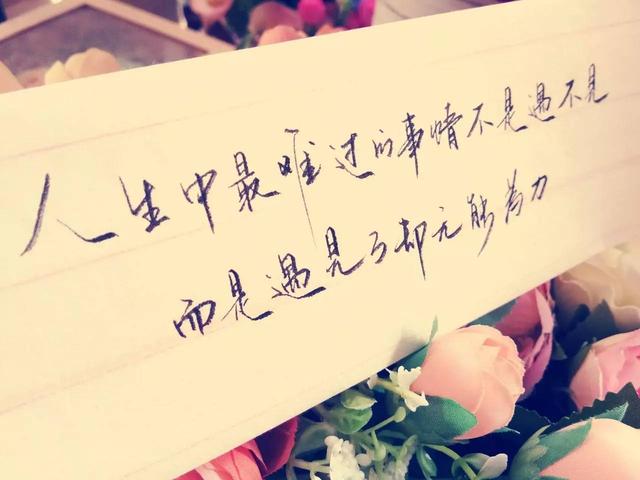 人生中最难过的事情不是遇不见
而是遇见了却无能为力